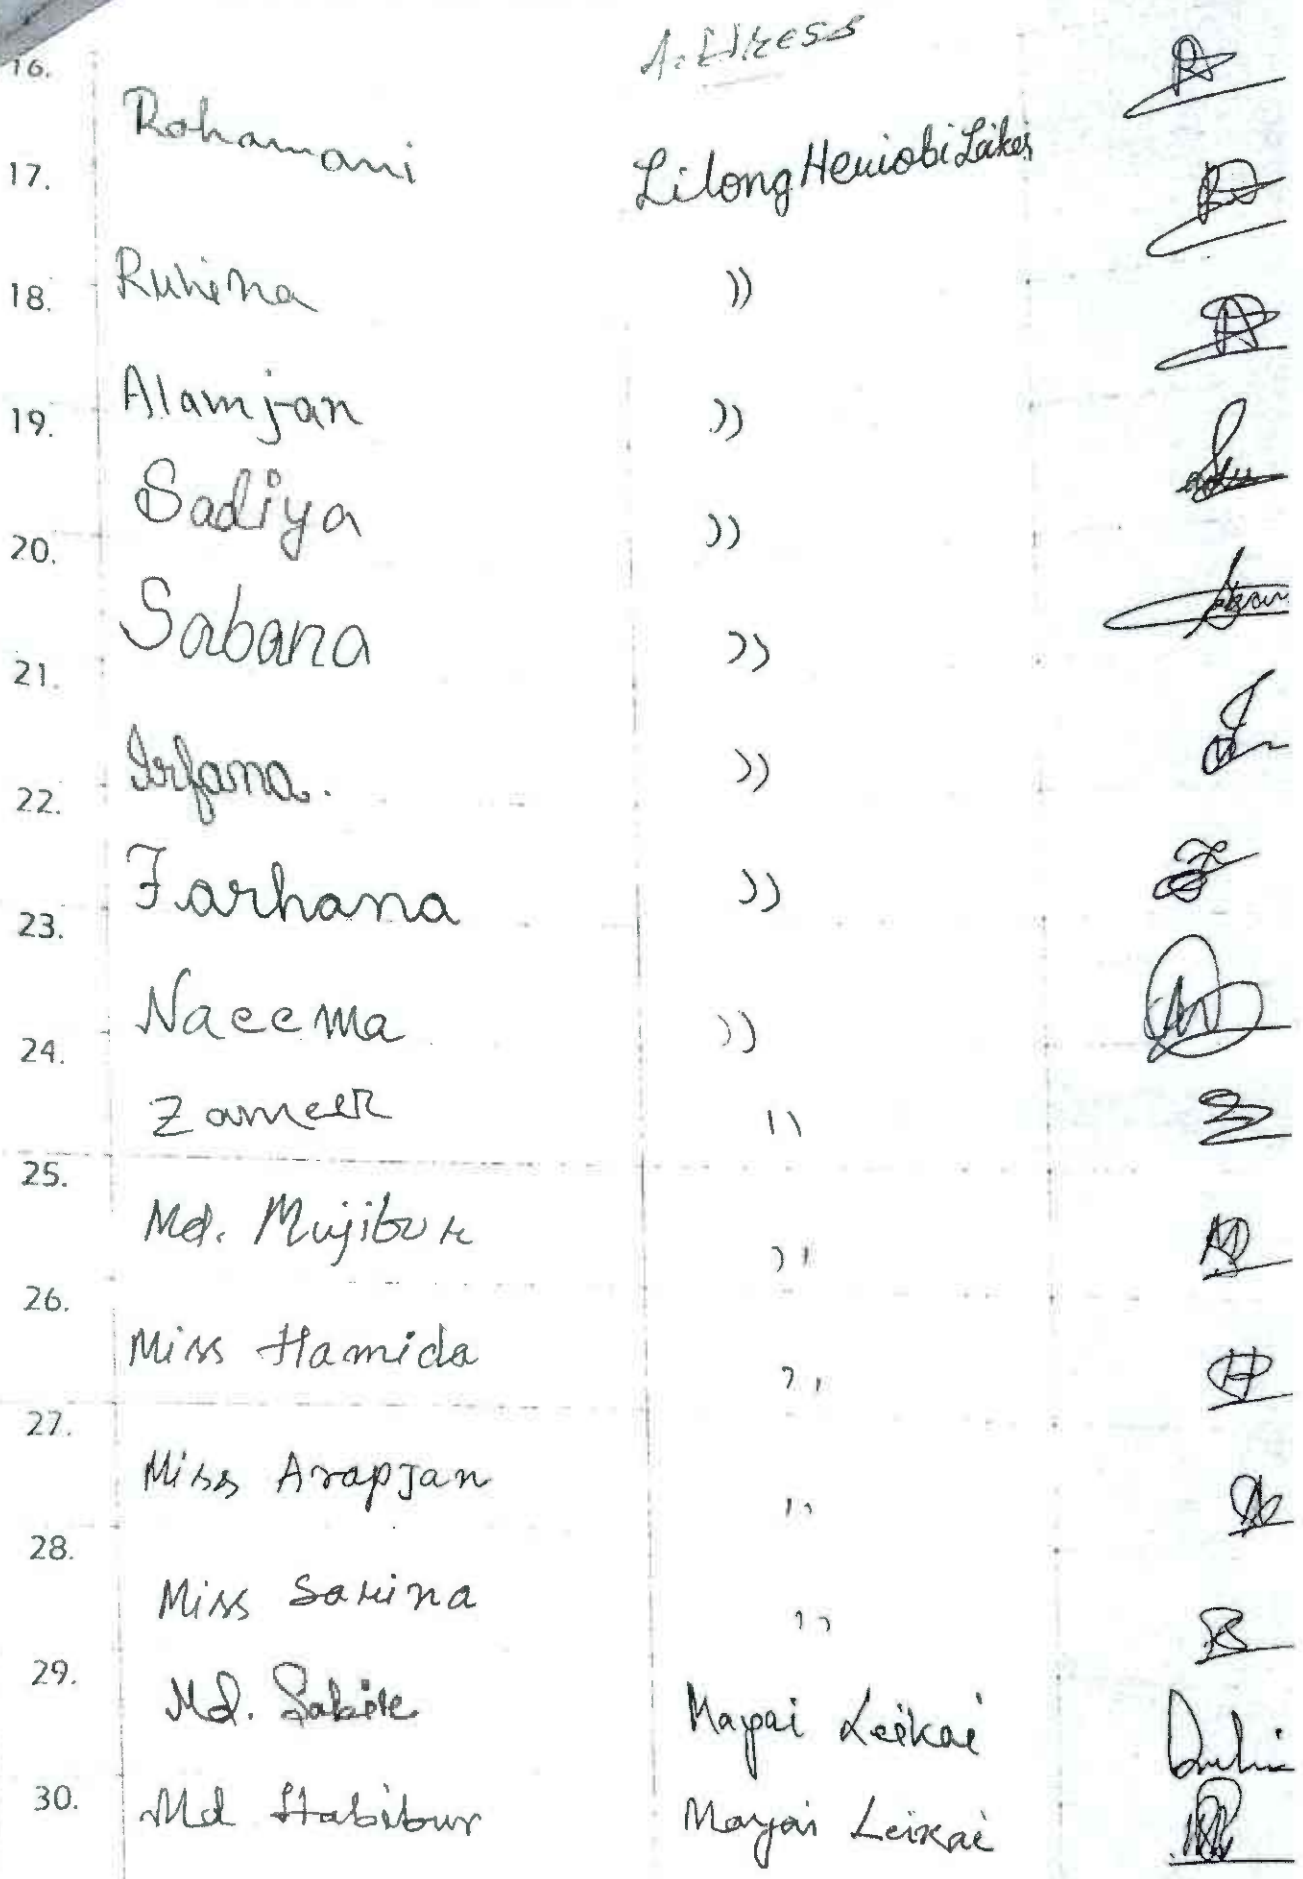 Address
16.
Rohamani Lilong Heinobi Leikai
17.
Ruhina ))
18.
Alamjan ))
19.
Sadiya ))
20.
Sabana ))
21.
Irfana. ))
22.
Farhana ))
23.
Naeema ))
24.
Zameer ))
25.
Md. Mujibur ))
26.
Miss Hamida ))
27.
Miss Arapjan ))
28.
Miss Sarina ))
29.
Md. Sabir Mayai Leikai
30.
Md Habibur Mayai Leikai